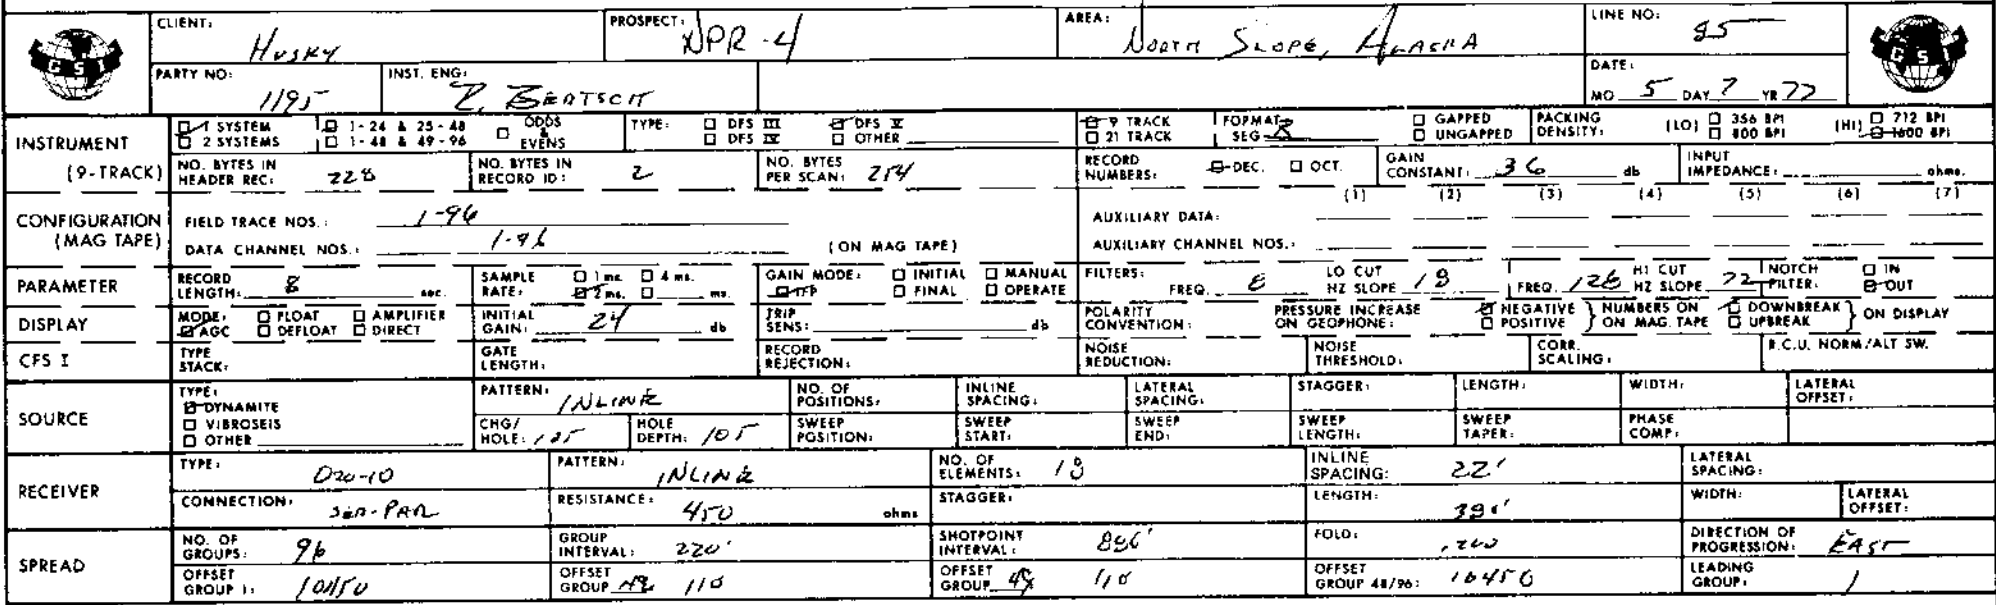 CLIENT: Husky PROSPECT: NPR-4 AREA: North Slope, Alaska LINE NO: 85
GSI GSI
PARTY NO: 1195 INST. ENG: DATE: MO 5 DAY 7 YR 77
INSTRUMENT (9-TRACK)
1 SYSTEM 1-24 & 25-48 ODDS & EVENS TYPE: DFS III DFS V 9 TRACK FORMAT GAPPED PACKING DENSITY: (LO) 356 BPI (HI) 712 BPI
2 SYSTEMS 1-48 & 49-96 DFS IV OTHER 21 TRACK SEG UNGAPPED 800 BPI 1600 BPI
NO. BYTES IN HEADER REC: 228 NO. BYTES IN RECORD ID: 2 NO. BYTES PER SCAN: 254 RECORD NUMBERS: DEC. OCT. GAIN CONSTANT: 36 db INPUT IMPEDANCE: ohms.
CONFIGURATION (MAG TAPE)
(1) (2) (3) (4) (5) (6) (7)
FIELD TRACE NOS.: 1-96 AUXILIARY DATA:
DATA CHANNEL NOS.: 1-96 (ON MAG TAPE) AUXILIARY CHANNEL NOS.:
PARAMETER RECORD LENGTH: 8 sec. SAMPLE RATE: 1 ms. 4 ms. 2 ms. ms. GAIN MODE: INITIAL MANUAL IFP FINAL OPERATE FILTERS: FREQ. 8 LO CUT HZ SLOPE 18 FREQ. 128 HI CUT HZ SLOPE 72 NOTCH FILTER: IN OUT
DISPLAY MODE: FLOAT AMPLIFIER AGC DEFLOAT DIRECT INITIAL GAIN: 24 db TRIP SENS: db POLARITY CONVENTION: PRESSURE INCREASE ON GEOPHONE: NEGATIVE POSITIVE NUMBERS ON MAG. TAPE DOWNBREAK UPBREAK ON DISPLAY
CFS I TYPE STACK: GATE LENGTH: RECORD REJECTION: NOISE REDUCTION: NOISE THRESHOLD: CORR. SCALING: R.C.U. NORM/ALT SW.
SOURCE
TYPE: DYNAMITE VIBROSEIS OTHER
PATTERN: INLINE NO. OF POSITIONS: INLINE SPACING: LATERAL SPACING: STAGGER: LENGTH: WIDTH: LATERAL OFFSET:
CHG/HOLE: HOLE DEPTH: 105 SWEEP POSITION: SWEEP START: SWEEP END: SWEEP LENGTH: SWEEP TAPER: PHASE COMP:
RECEIVER
TYPE: D20-10 PATTERN: INLINE NO. OF ELEMENTS: 18 INLINE SPACING: 22' LATERAL SPACING:
CONNECTION: SER-PAR RESISTANCE: 450 ohms STAGGER: LENGTH: WIDTH: LATERAL OFFSET:
SPREAD
NO. OF GROUPS: 96 GROUP INTERVAL: 220' SHOTPOINT INTERVAL: FOLD: DIRECTION OF PROGRESSION: EAST
OFFSET GROUP 1: OFFSET GROUP 48 110 OFFSET GROUP 49 110 OFFSET GROUP 48/96: 10450 LEADING GROUP: 1